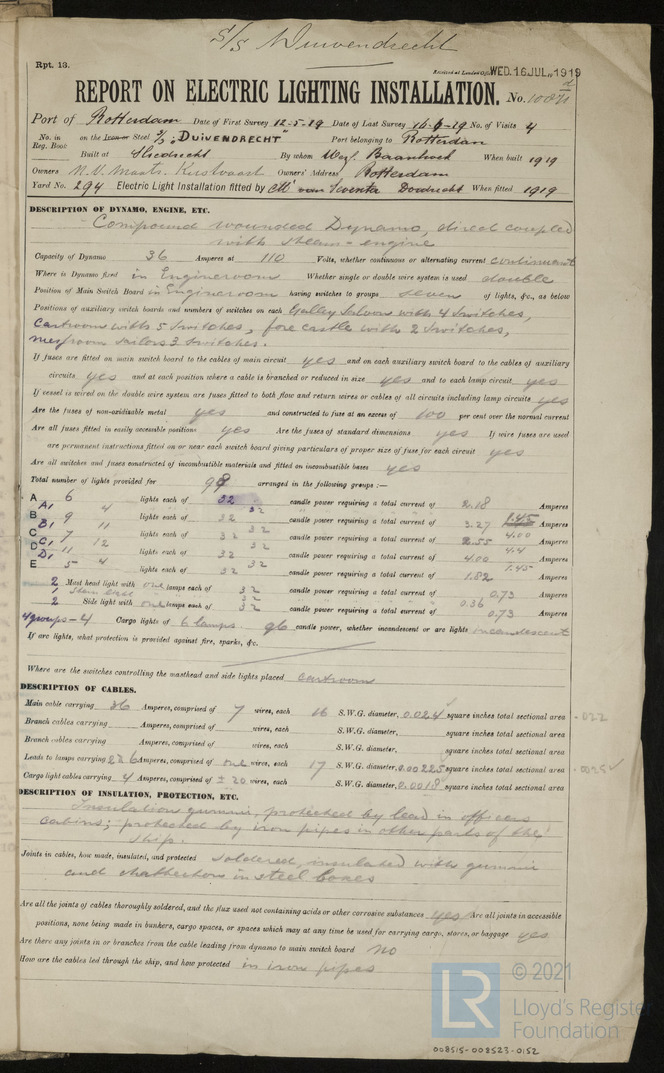 S/S Duivendrecht
Rpt. 13.
Received at London Office WED. 16 JUL. 1919
REPORT ON ELECTRIC LIGHTING INSTALLATION. No.
Port of Rotterdam Date of First Survey 12-5-19 Date of Last Survey No. of Visits 4
No. in Reg. Book on the Iron or Steel S/S "DUIVENDRECHT" Port belonging to Rotterdam
Built at Sliedrecht By whom When built 1919
Owners N.V. Maats. Owners' Address Rotterdam
Yard No. 294 Electric Light Installation fitted by Dordrecht When fitted 1919
DESCRIPTION OF DYNAMO, ENGINE, ETC.
Compound wounded Dynamo, direct coupled
with steam-engine
Capacity of Dynamo 36 Amperes at 110 Volts, whether continuous or alternating current continuous
Where is Dynamo fixed in Engineroom Whether single or double wire system is used double
Position of Main Switch Board in Engineroom having switches to groups seven of lights, &c., as below
Positions of auxiliary switch boards and numbers of switches on each Galley Saloon with 4 switches,
Cartroom with 5 switches, fore castle with 2 switches,
messroom sailors 3 switches.
If fuses are fitted on main switch board to the cables of main circuit yes and on each auxiliary switch board to the cables of auxiliary
circuits yes and at each position where a cable is branched or reduced in size yes and to each lamp circuit yes
If vessel is wired on the double wire system are fuses fitted to both flow and return wires or cables of all circuits including lamp circuits yes
Are the fuses of non-oxidizable metal yes and constructed to fuse at an excess of 100 per cent over the normal current
Are all fuses fitted in easily accessible positions yes Are the fuses of standard dimensions yes If wire fuses are used
are permanent instructions fitted on or near each switch board giving particulars of proper size of fuse for each circuit yes
Are all switches and fuses constructed of incombustible materials and fitted on incombustible bases yes
Total number of lights provided for arranged in the following groups :—
A 6 lights each of 32 candle power requiring a total current of 2.18 Amperes
A1 4 32 1.45
B 9 lights each of 32 candle power requiring a total current of 3.27 Amperes
B1 11 32 4.00
C 7 lights each of 32 candle power requiring a total current of 2.55 Amperes
C1 12 32 4.4
D 11 lights each of 32 candle power requiring a total current of 4.00 Amperes
D1 4 32 1.45
E 5 lights each of 32 candle power requiring a total current of 1.82 Amperes
2 Mast head light with one lamps each of 32 candle power requiring a total current of 0.73 Amperes
1 Stern 32 0.36
2 Side light with one lamps each of 32 candle power requiring a total current of 0.73 Amperes
4 groups - 4 Cargo lights of 6 lamps. 96 candle power, whether incandescent or arc lights incandescent
If arc lights, what protection is provided against fire, sparks, &c.
Where are the switches controlling the masthead and side lights placed cartroom
DESCRIPTION OF CABLES.
Main cable carrying 36 Amperes, comprised of 7 wires, each 16 S.W.G. diameter, 0.024 square inches total sectional area .022
Branch cables carrying Amperes, comprised of wires, each S.W.G. diameter, square inches total sectional area
Branch cables carrying Amperes, comprised of wires, each S.W.G. diameter, square inches total sectional area
Leads to lamps carrying Amperes, comprised of one wires, each 17 S.W.G. diameter, 0.00225 square inches total sectional area
Cargo light cables carrying 4 Amperes, comprised of ± 20 wires, each S.W.G. diameter, 0.0018 square inches total sectional area
DESCRIPTION OF INSULATION, PROTECTION, ETC.
Insulation gummi, protected by lead in officers
cabins; protected by iron pipes in other parts of the
ship.
Joints in cables, how made, insulated, and protected soldered, insulated with gummi
and chatterton in steel boxes
Are all the joints of cables thoroughly soldered, and the flux used not containing acids or other corrosive substances yes Are all joints in accessible
positions, none being made in bunkers, cargo spaces, or spaces which may at any time be used for carrying cargo, stores, or baggage yes
Are there any joints in or branches from the cable leading from dynamo to main switch board no
How are the cables led through the ship, and how protected in iron pipes
© 2021
LR
Lloyd's Register
Foundation
008515-008523-0152